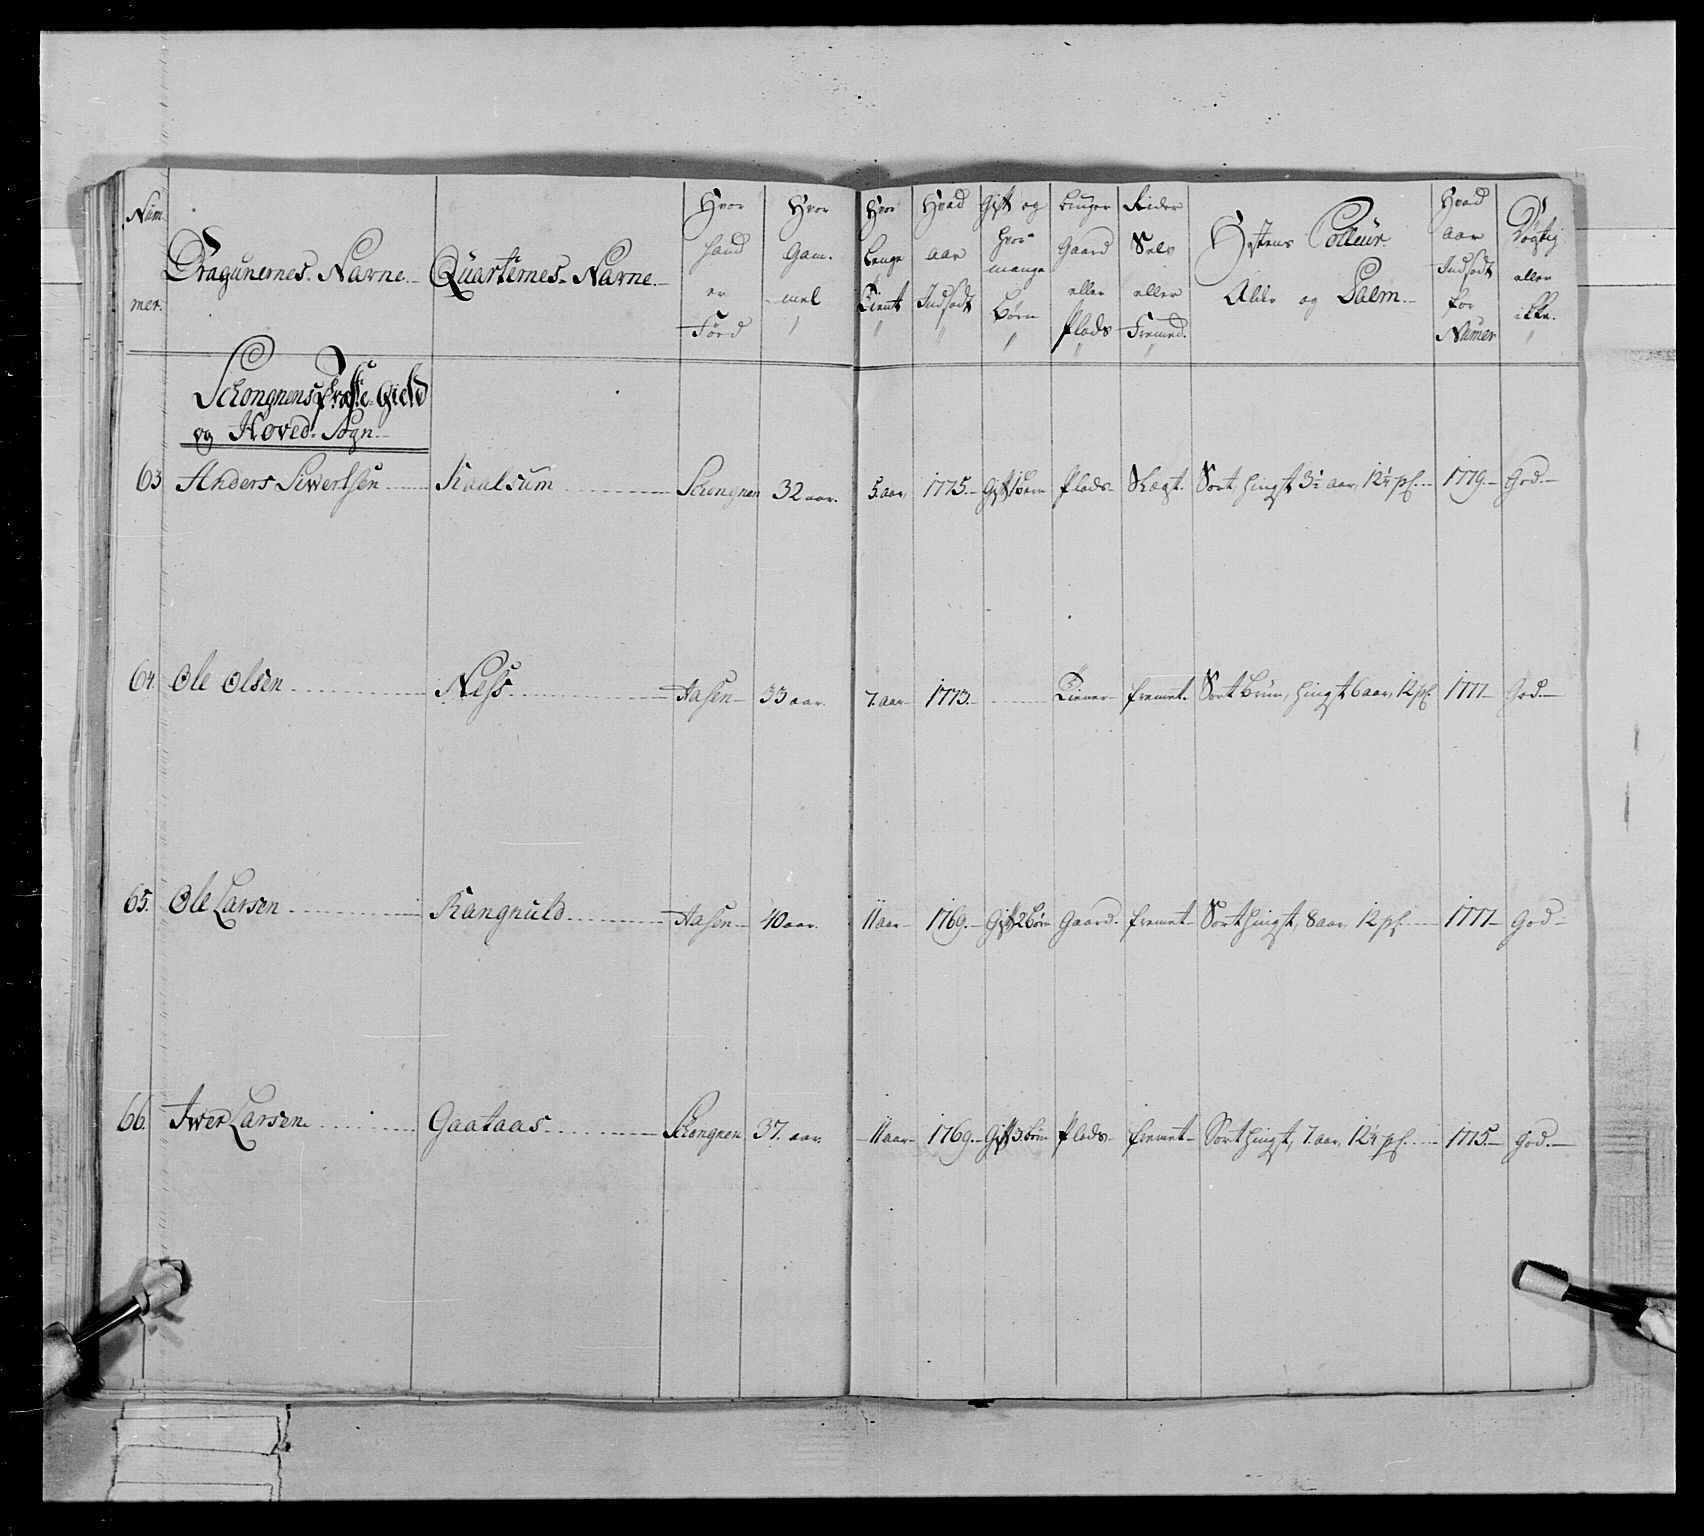 Num-
mer.
Dragunernes Navne.
Quarternes Navne.
Hvor
hand
er
Förd
Hvor
Gam-
mel
Hvor
Lenge
Tient
Hvad
aar
Indsadt
Gift og
hvor
mange
Börn
Bruger
Gaard
eller
Plads
Rider
Selv
eller
Fremed.
Hestens Colleur
Alder og Palm.
Hvad
aar
Indsadt
for
Numer
Dögtig
eller
ikke.
Schongnens Præste-Gield
og Hoved-Sogn.
63 Anders Siwertsen Kaalsum Schongnen 32 aar. 5. aar. 1775. Gift 1 Börn Plads Skagt. Sort hingst 3½ aar, 12¼ pf. 1779. God.
64. Ole Olsen Ness Aasen 33 aar. 7. aar 1773. Tiener fremet. Sort Brun, hingst 6 aar, 12 pf. 1777 God.
65. Ole Larsen Rangnuld Aasen 40 aar. 11 aar 1769. Gift 2 Börn Gaard. fremet Sort hingst, 8 aar, 12 pf. 1777 God
66. Iwer Larsen Gaataas Schongnen 37. aar. 11 aar 1769. Gift 3. Börn Plads fremet Sort hingst, 7. aar, 12¼ pf. 1775. God.